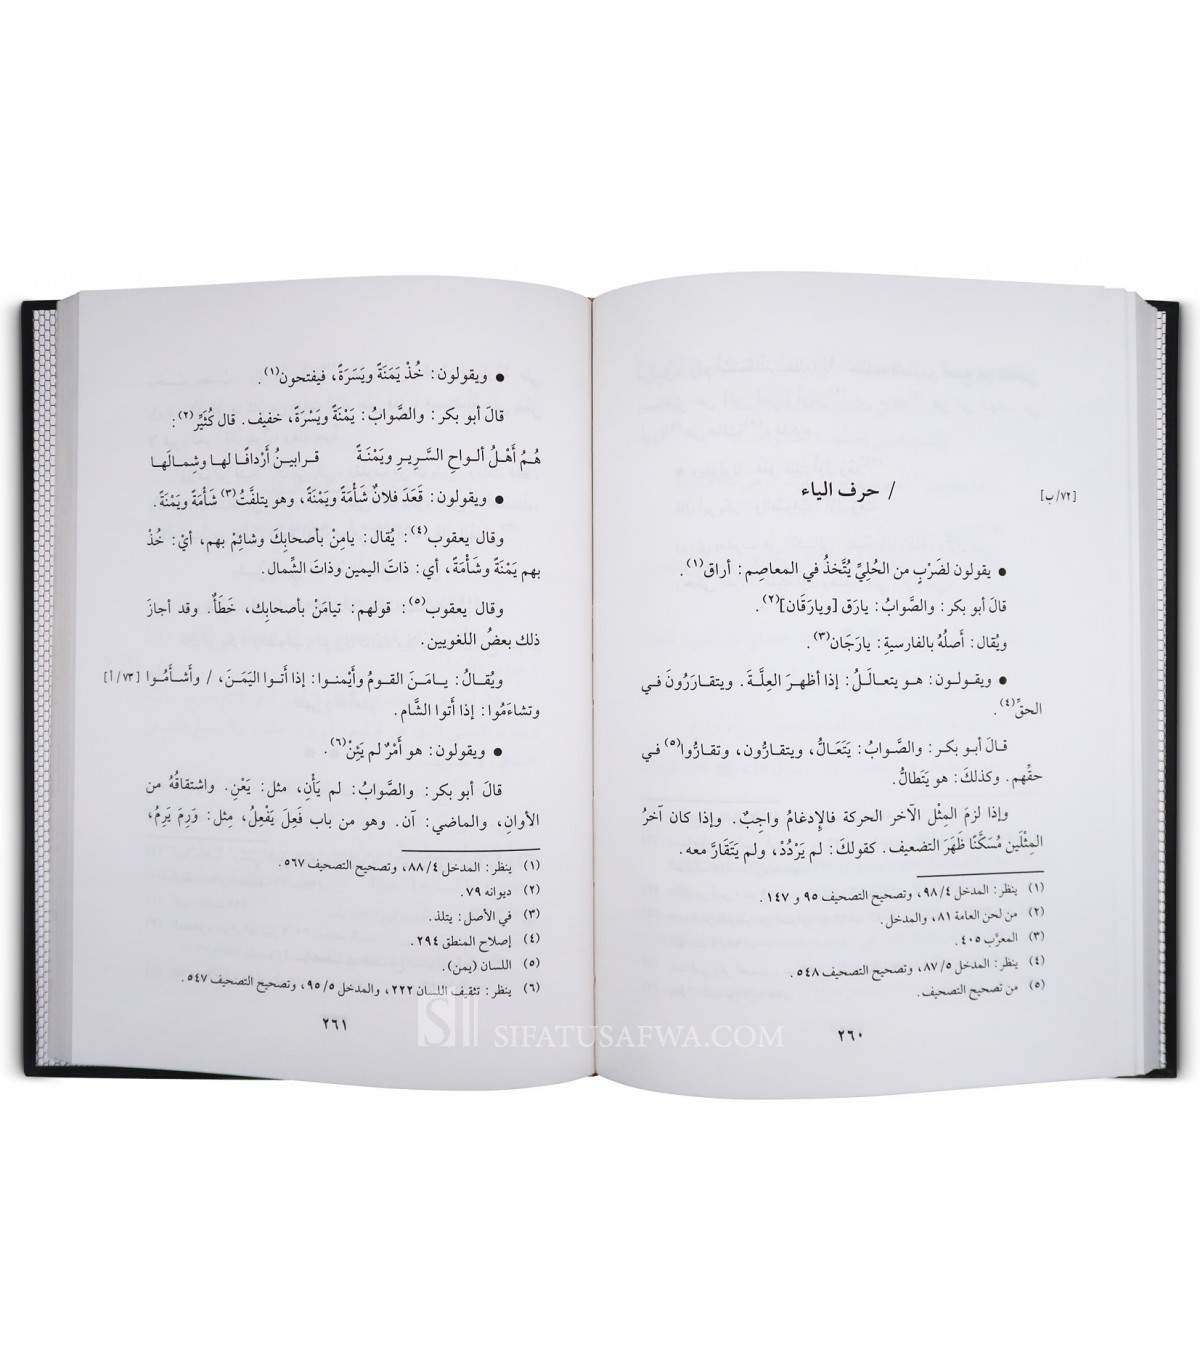 / حرف الياء
[٧٢/ب]
● يقولون لضَرْبٍ من الحُلِيِّ يُتَّخذُ في المعاصِم: أراق(١).
قالَ أبو بكر: والصَّوابُ: يارَق [ويارَقَان](٢).
ويُقال: أَصلُهُ بالفارسيةِ: يارَجَان(٣).
● ويقـولـون: هـو يتعـالَـلُ: إذا أظهـرَ العِلَّـةَ. ويتقـارَرُونَ فـي
الحقِّ(٤).
قـالَ أبـو بكـر: والصَّـوابُ: يَتَعَـالُّ، ويتقـارُّون، وتقـارُّوا(٥) فـي
حقِّهم. وكذلكَ: هو يَتَطالُّ.
وإذا لزمَ المِثْل الآخر الحركة فالإِدغامُ واجِبٌ. وإذا كان آخرُ
المِثْلَين مُسَكَّنًا ظَهَرَ التضعيف. كقولكَ: لم يَرْدُدْ، ولم يَتَقَارَّ معه.
(١) ينظر: المدخل ٩٨/٤، وتصحيح التصحيف ٩٥ و ١٤٧.
(٢) من لحن العامة ٨١، والمدخل.
(٣) المعرَّب ٤٠٥.
(٤) ينظر: المدخل ٨٧/٥، وتصحيح التصحيف ٥٤٨.
(٥) من تصحيح التصحيف.
٢٦٠
● ويقولون: خُذْ يَمَنَةً ويَسَرَةً، فيفتحون(١).
قالَ أبو بكر: والصَّوابُ: يَمْنَةً ويَسْرَةً، خفيف. قال كُثَيِّر(٢):
هُـمُ أَهْـلُ ألـواحِ السَّـريـرِ ويَمْنَـةً قـرابيـنُ أَرْدافًـا لهـا وشِمـالَهـا
● ويقولون: قَعَدَ فلانٌ شَأْمَةً ويَمْنَةً، وهو يتلفَّتُ(٣) شَأْمَةً ويَمْنَةً.
وقال يعقوب(٤): يُقال: يامِنْ بأصحابِكَ وشائِمْ بهم، أيْ: خُذْ
بهم يَمْنَةً وشَأْمَةً، أي: ذاتَ اليمين وذاتَ الشِّمال.
وقال يعقوب(٥): قولهم: تيامَنْ بأصحابِك، خَطَأٌ. وقد أجازَ
ذلك بعضُ اللغويين.
ويُقـالُ: يـامَـنَ القـومُ وأَيْمنـوا: إذا أَتـوا اليَمَـنَ، / وأَشـأَمُـوا [٧٣/أ]
وتشاءَمُوا: إذا أَتوا الشَّام.
● ويقولون: هو أَمْرٌ لم يَئِنْ(٦).
قالَ أبو بكر: والصَّوابُ: لم يَأْنِ، مثل: يَعْنِ. واشتقاقُهُ من
الأوانِ، والماضي: آن. وهو من باب فَعِلَ يَفْعِلُ، مِثل: وَرِمَ يَرِمُ،
(١) ينظر: المدخل ٨٨/٤، وتصحيح التصحيف ٥٦٧.
(٢) ديوانه ٧٩.
(٣) في الأصل: يتلذ.
(٤) إصلاح المنطق ٢٩٤.
(٥) اللسان (يمن).
(٦) ينظر: تثقيف اللسان ٢٢٢، والمدخل ٩٥/٥، وتصحيح التصحيف ٥٤٧.
٢٦١
SIFATUSAFWA.COM